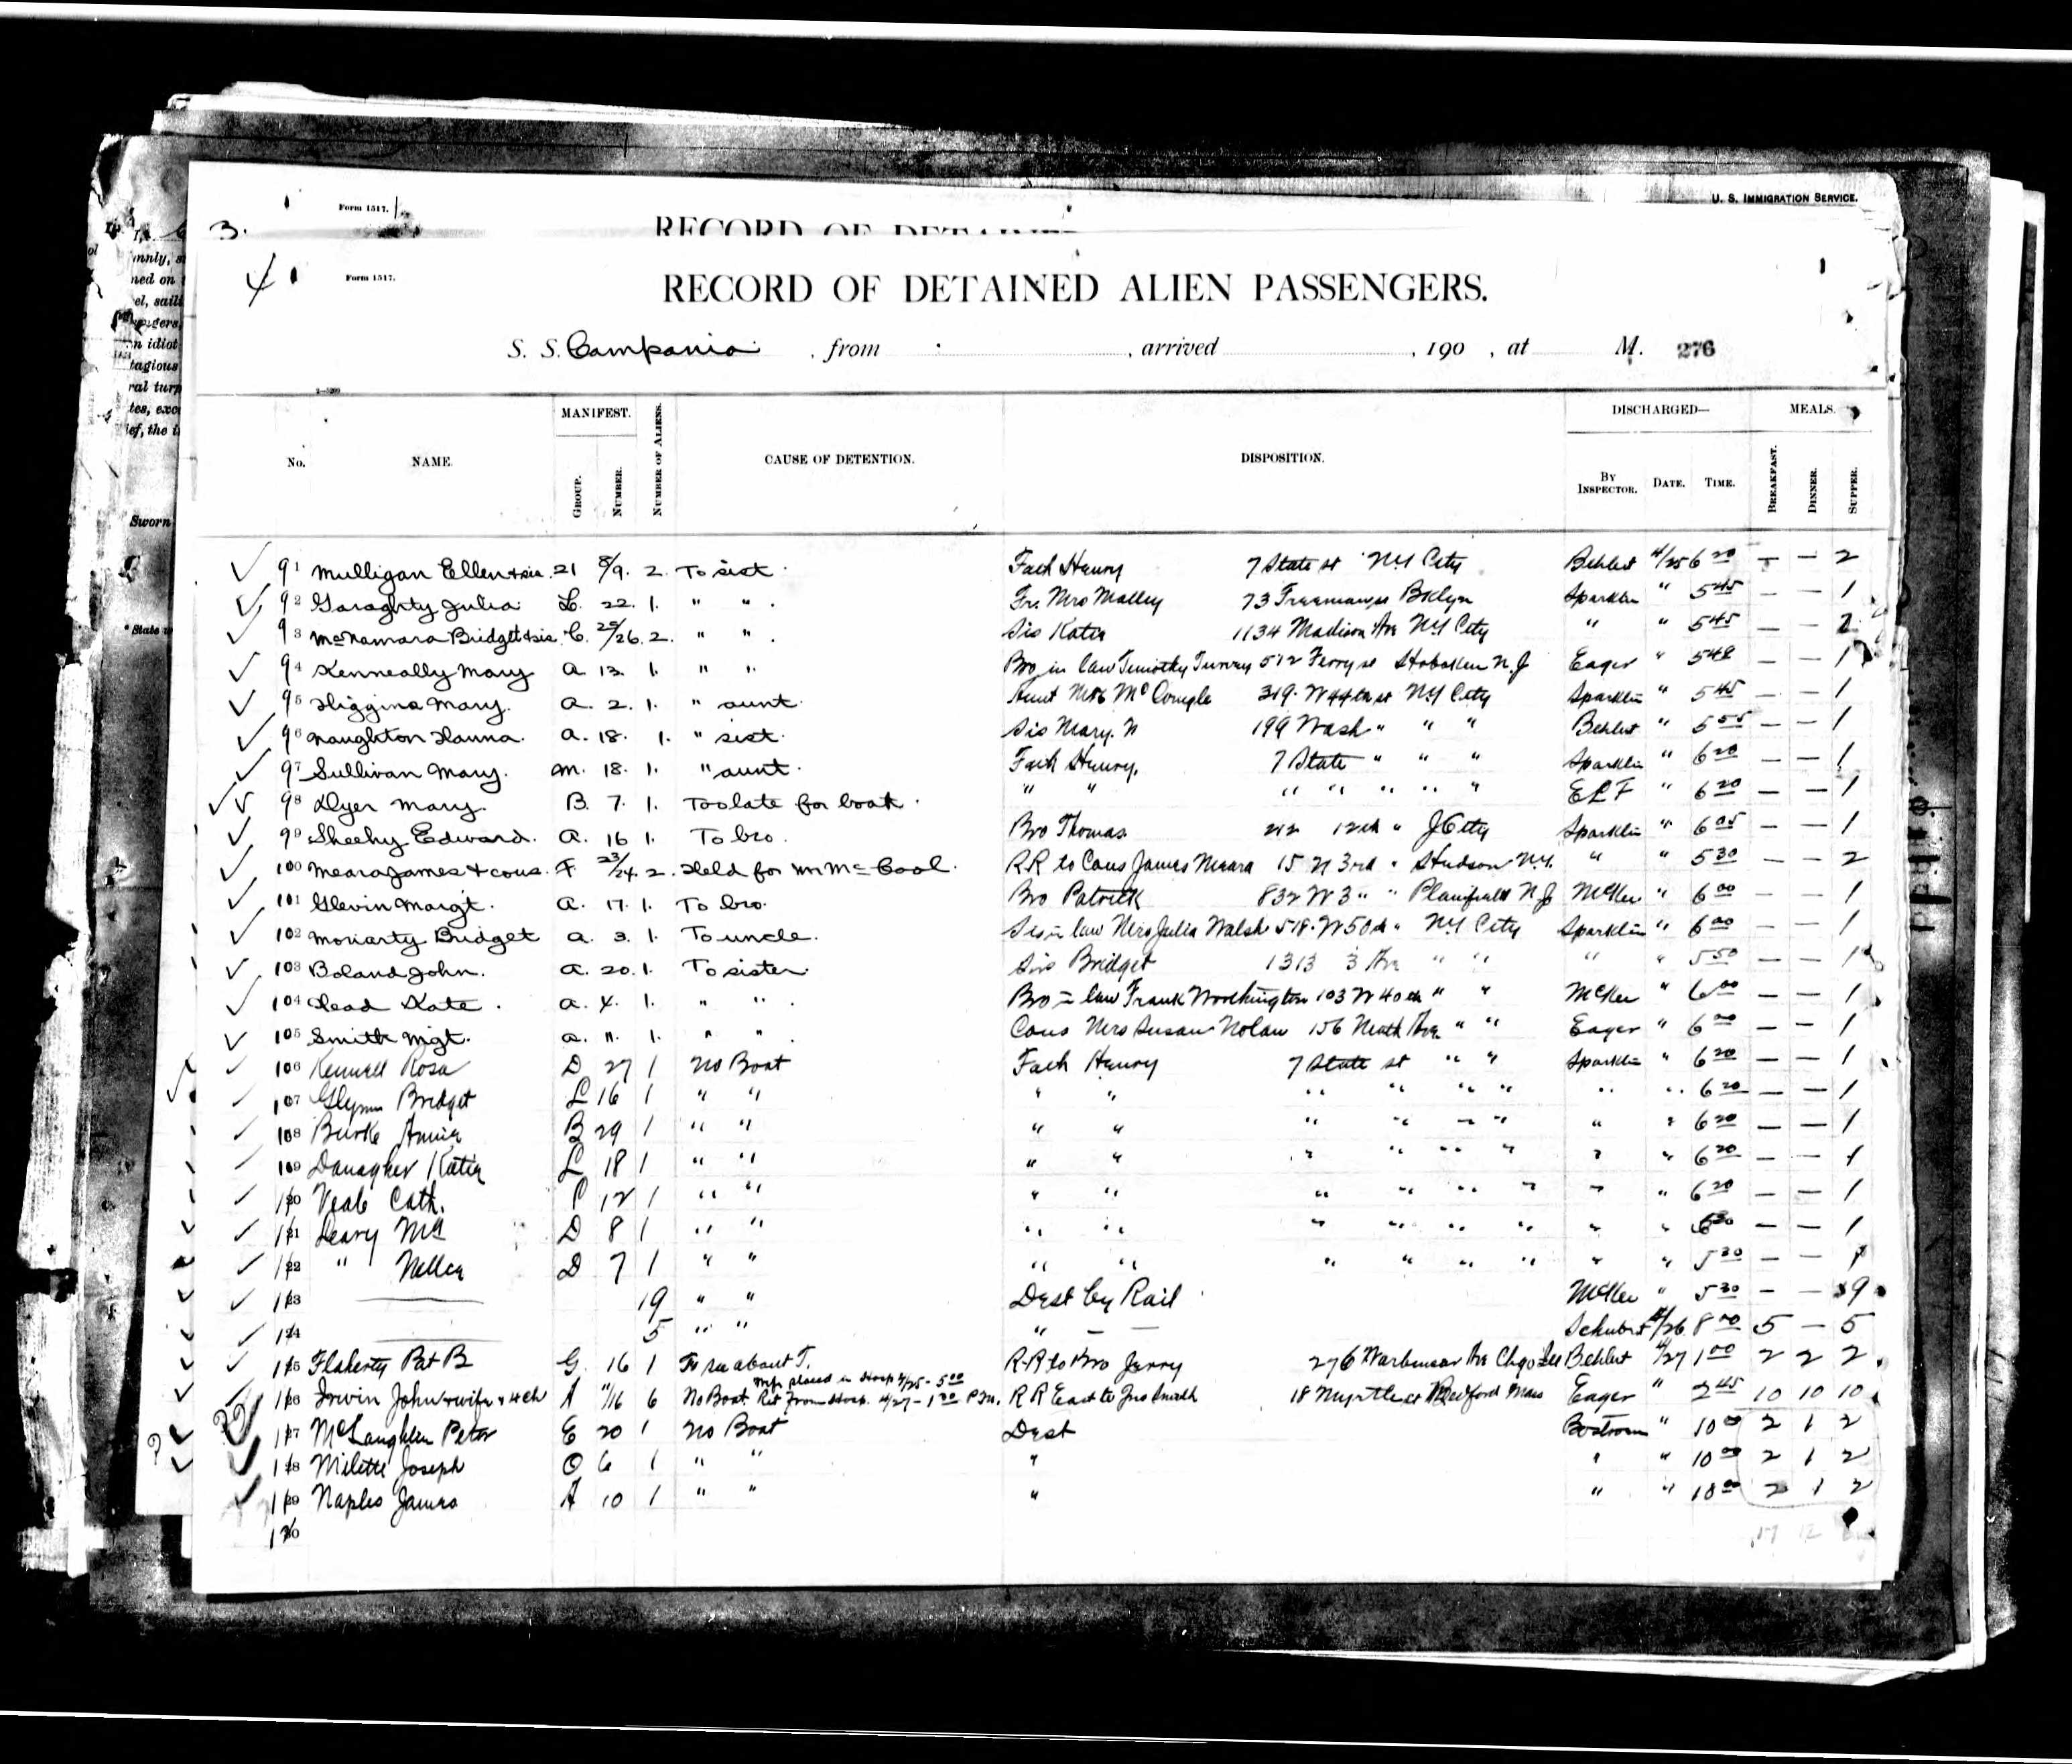 Form 1517.
U. S. IMMIGRATION SERVICE.
3.
RECORD OF DETAINED
4
Form 1517.
RECORD OF DETAINED ALIEN PASSENGERS.
S. S. Campania , from , arrived , 190 , at M. 276
2—5299
No. NAME. MANIFEST. GROUP. NUMBER. NUMBER OF ALIENS. CAUSE OF DETENTION. DISPOSITION. DISCHARGED— BY INSPECTOR. DATE. TIME. MEALS. BREAKFAST. DINNER. SUPPER.
91 Mulligan Ellen + sis. 21 8/9. 2. To sist. Fath Henry 7 State st NY City 4/25 6 20 — — 2
92 Garaghty Julia L. 22. 1. " " . Fr. Mrs Malley 73 Bklyn Sparklin " 5 45 — — 1
93 McNamara Bridget + sis C. 25/26. 2. " " . Sis Katie 1134 Madison Ave NY City " " 5 45 — — 2
94 Kenneally Mary a 13. 1. " " Bro in law Timothy 512 Ferry st Hoboken N.J Eager " 5 48 — — 1
95 Higgins Mary. a. 2. 1. " aunt. Aunt 319. W 44th st NY City Sparklin " 5 45 — — 1
96 Naughton Hanna. a. 18. 1. " sist. Sis Mary. N 199 Wash " " " " 5 55 — — 1
97 Sullivan Mary. M. 18. 1. " aunt. Fath Henry. 7 State " " " Sparklin " 6 20 — — 1
98 Dyer Mary. B. 7. 1. Too late for boat. " " " " " " " E L F " 6 20 — — 1
99 Sheehy Edward. a. 16 1. To bro. Bro Thomas 212 12th " J City Sparklin " 6 05 — — 1
100 Meara James + cous. F. 23/24. 2. Held for Mr McCool. R.R to Cous James Meara 15 N 3rd " Hudson N.Y. " " 5 30 — — 2
101 Glevin Margt. a. 17. 1. To bro. Bro Patrick 832 W 3 " " Plainfield N J McKee " 6 00 — — 1
102 Moriarty Bridget a. 3. 1. To uncle. Sis in law Mrs Julia Walsh 518. W 50th " NY City Sparklin " 6 00 — — 1
103 Boland John. a. 20. 1. To sister. Sis Bridget 1313 3 Ave " " " " 5 50 — — 1
104 Head Kate. a. 4. 1. " " . Bro in law Frank Worthington 103 W 40th " " McKee " 6 00 — — 1
105 Smith Mgt. a. 11. 1. " " . Cous Mrs Susan Nolan 156 Ninth Ave " " Eager " 6 00 — — 1
106 Rosa D 27 1 No Boat Fath Henry 7 State st " " Sparklin " 6 20 — — 1
107 Glynn Bridget L 16 1 " " " " " " " " " " 6 20 — — 1
108 Burke Annie B 29 1 " " " " " " " " " " 6 20 — — 1
109 Danagher Katie L 18 1 " " " " " " " " " " 6 20 — — 1
110 Veale Cath. P 12 1 " " " " " " " " " " 6 20 — — 1
111 Leary D 8 1 " " " " " " " " " " — — 1
112 " Nellie D 7 1 " " " " " " " " " " 5 30 — — 1
113 19 " " Dest by Rail McKee " 5 30 — — 19
114 5 " " " Schubert 4/26 8 00 5 — 5
115 Flaherty Pat B G. 16 1 To see about T. R.R to Bro Jerry 276 Ave Chgo Ills 4/27 1 00 2 2 2
wife placed in Hosp 4/25 - 5 00
116 Irwin John + wife + 4 ch A 11/16 6 No Boat Ret From Hosp. 4/27 - 1 30 P.M. R R East to Jno Smith 18 Myrtle st Bedford Mass Eager " 2 45 10 10 10
117 McLaughlin Peter E 20 1 No Boat Dest Bostrom " 10 00 2 1 2
118 Milette Joseph O 6 1 " " " " " 10 00 2 1 2
119 Naples James A 10 1 " " " " " 10 00 2 1 2
120
17 12